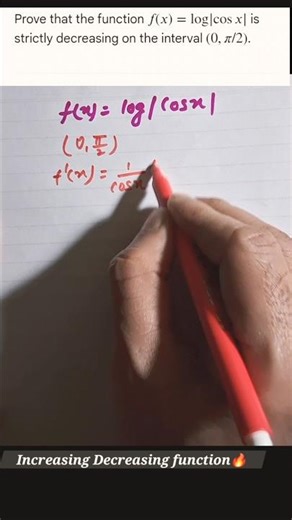 Prove that the function f(x) = log|cos x| is
strictly decreasing on the interval (0, π/2).
f(x) = log|cosx|
(0, π/2)
f'(x) = 1/cosx
Increasing Decreasing function🔥